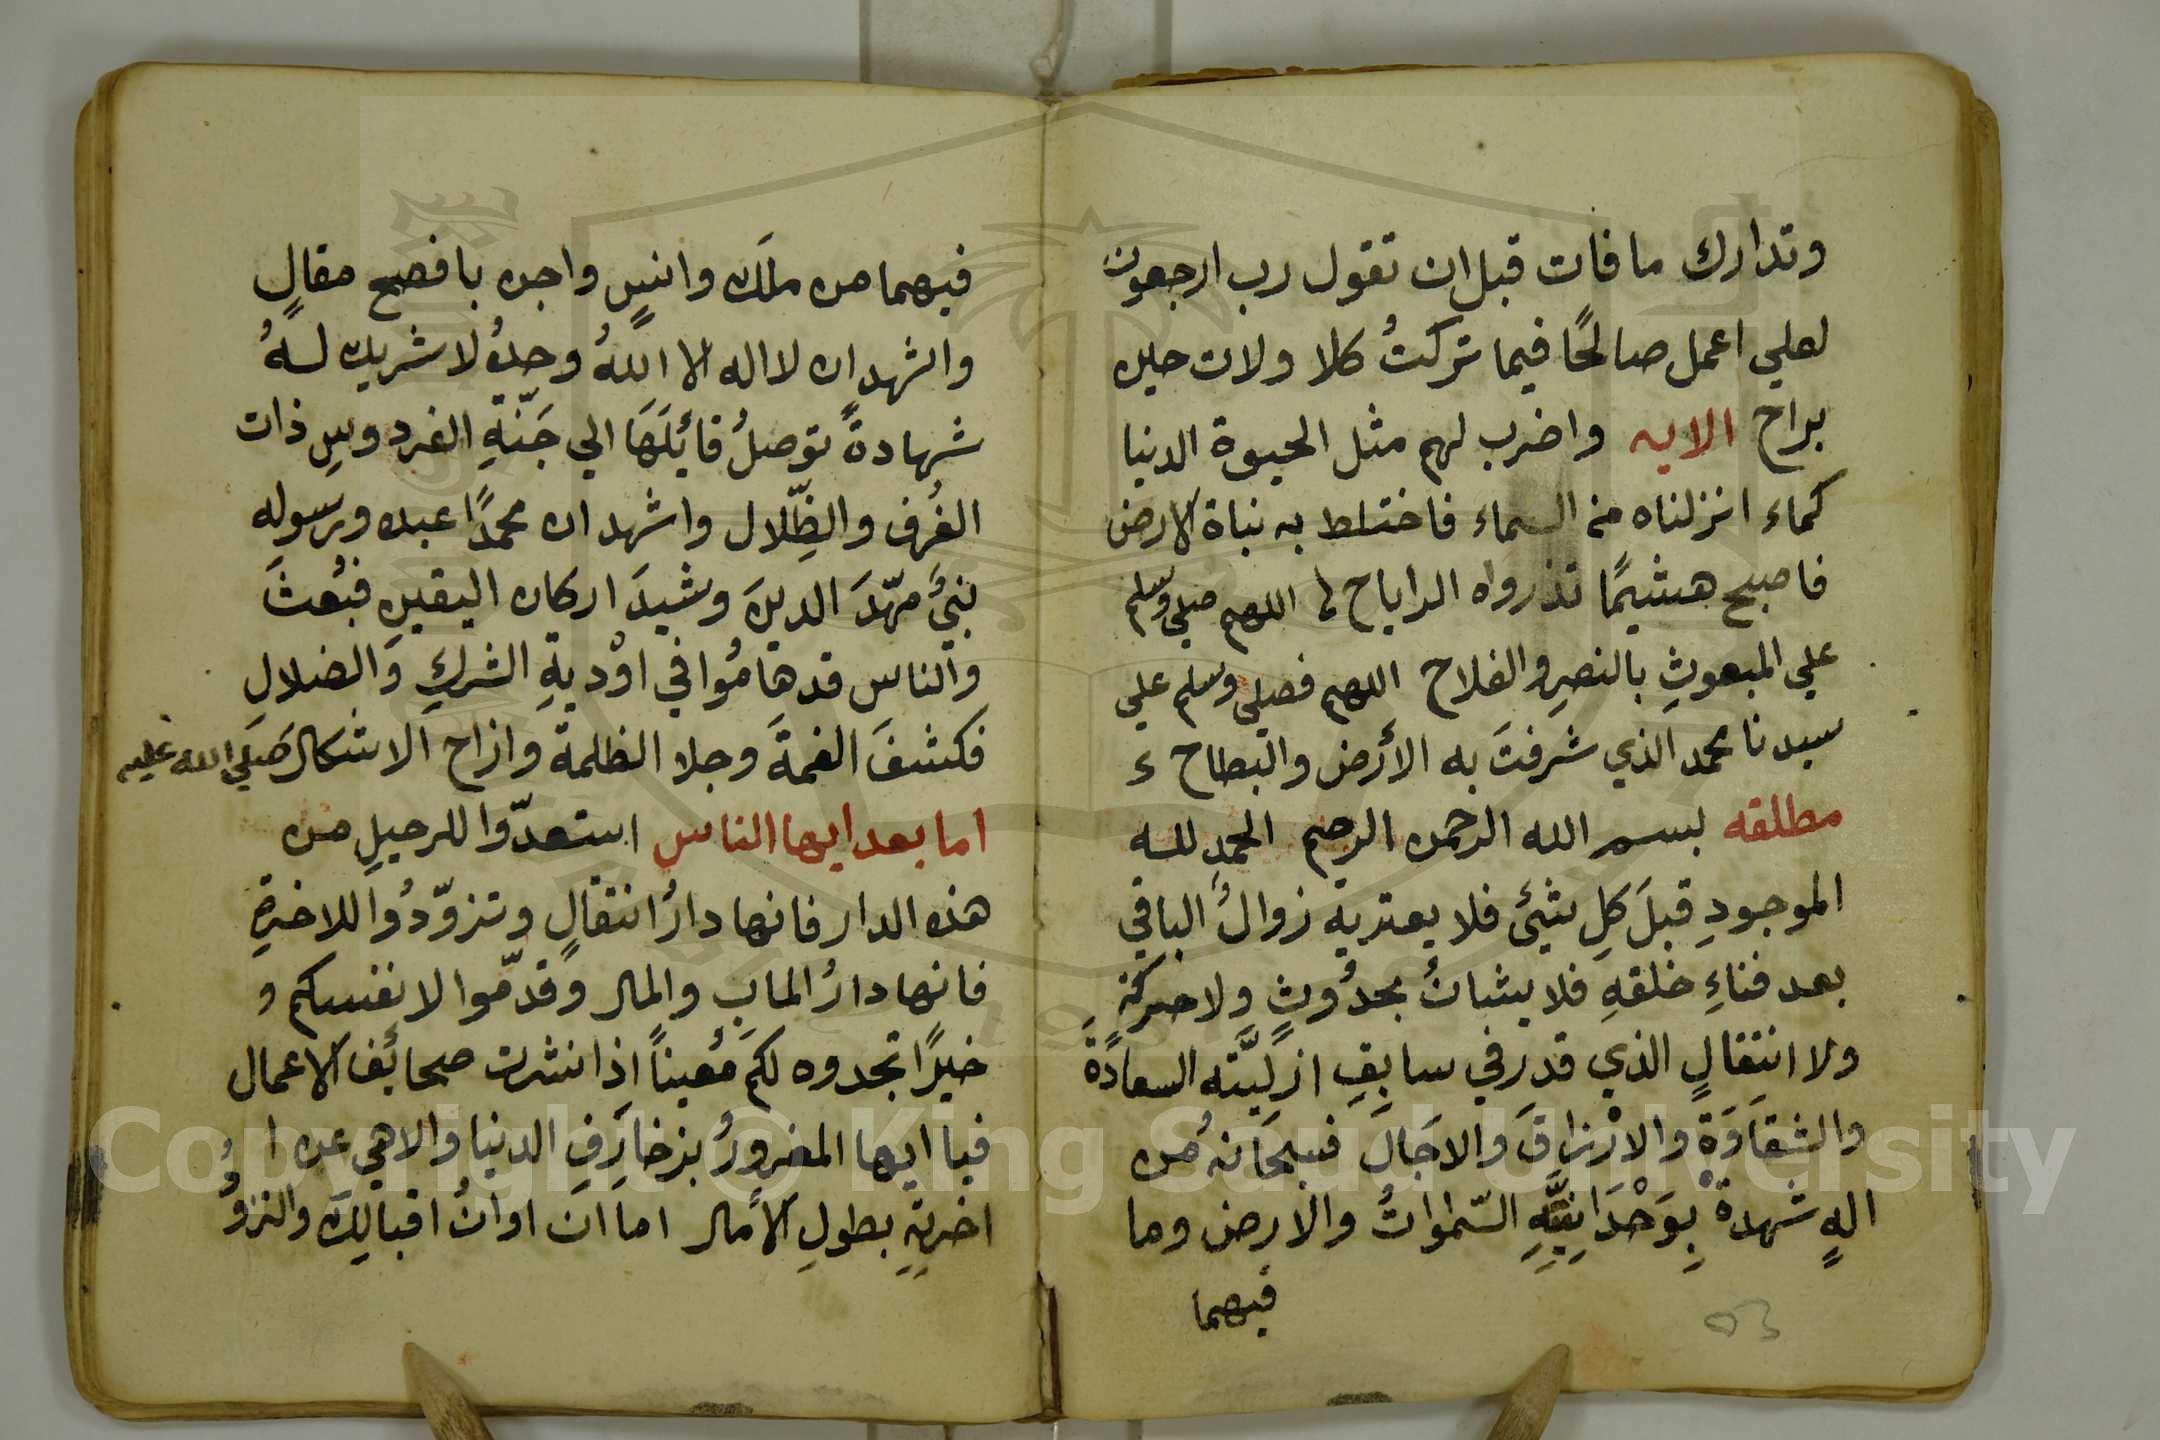 وتدارك ما فات قبل ان تقول رب ارجعون
لعلي اعمل صالحًا فيما تركتُ كلا ولات حين
براح الايه واضرب لهم مثل الحيوة الدنيا
كماء انزلناه من السماء فاختلط به نباة الارض
فاصبح هشيمًا تذرواه الراياح اللهم صلي وسلم
علي المبعوثِ بالنصرِ والفلاح اللهم فصلي وسلم علي
سيدنا محمد الذي شرفتَ به الأرض والبطاح
مطلقه بسم الله الرحمن الرحيم الحمدِ لله
الموجودِ قبلَ كلِ شيئ فلا يعتريه زوالُ الباقي
بعد فناءِ خلقهِ فلا يشانُ بحدُوثٍ ولا حركةٍ
ولا انتقالٍ الذي قدر في سابِقِ ازليَّته السعادةَ
والشقاَوَةَ والارْزاقَ والاجَالَ فسبحَانهُ من
الهٍ شهدةْ بِوَحْدَانِيَّتِهِ السّمٰواتُ والارض وما
فيهما
٥٣
فيهما من ملَك وانسٍ واجن بافصح مقالٍ
واشهد ان لا اله الا اللهُ وحدهُ لا شريك لهُ
شهادةً توصلُ قائلَهَا الي جَنّةِ الفردوسِ ذات
الغُرف والظِّلال واشهد ان محمدًا عبده ورسوله
نبيٌ مهّدَ الدينَ وشيدَ اركان اليقينِ فبُعثَ
والناس قد هامُوا في اوْديةِ الشركِ وَالضلالِ
فكشفَ الغمةَ وجلا الظلمة وازاح الاشكال صَلي الله عليه
اما بعد ايها الناس استعدّوا للرحيلِ من
هذه الدار فانها دارُ انتقالٍ وتزوّدُوا للاخرةِ
فانها دارُ المابِ والمال وقدّموا لانفسكم و
خيرًا تجدوه لكم مُعيناً اذا نشرت صحائف الاعمال
فيا ايها المغرورُ بزخارَفِ الدنيا والاهي عن ا
اخرتِهِ بطولِ الأمال اما انَ اوانُ اقبالِكَ والنزوُ
Copyright © King Saud University